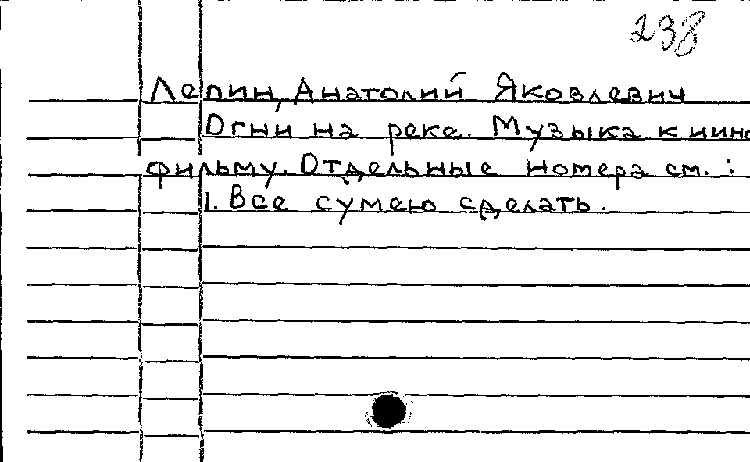 238
Лепин, Анатолий Яковлевич
Огни на реке. Музыка к кино
фильму. Отдельные номера см. :
1. Все сумею сделать.